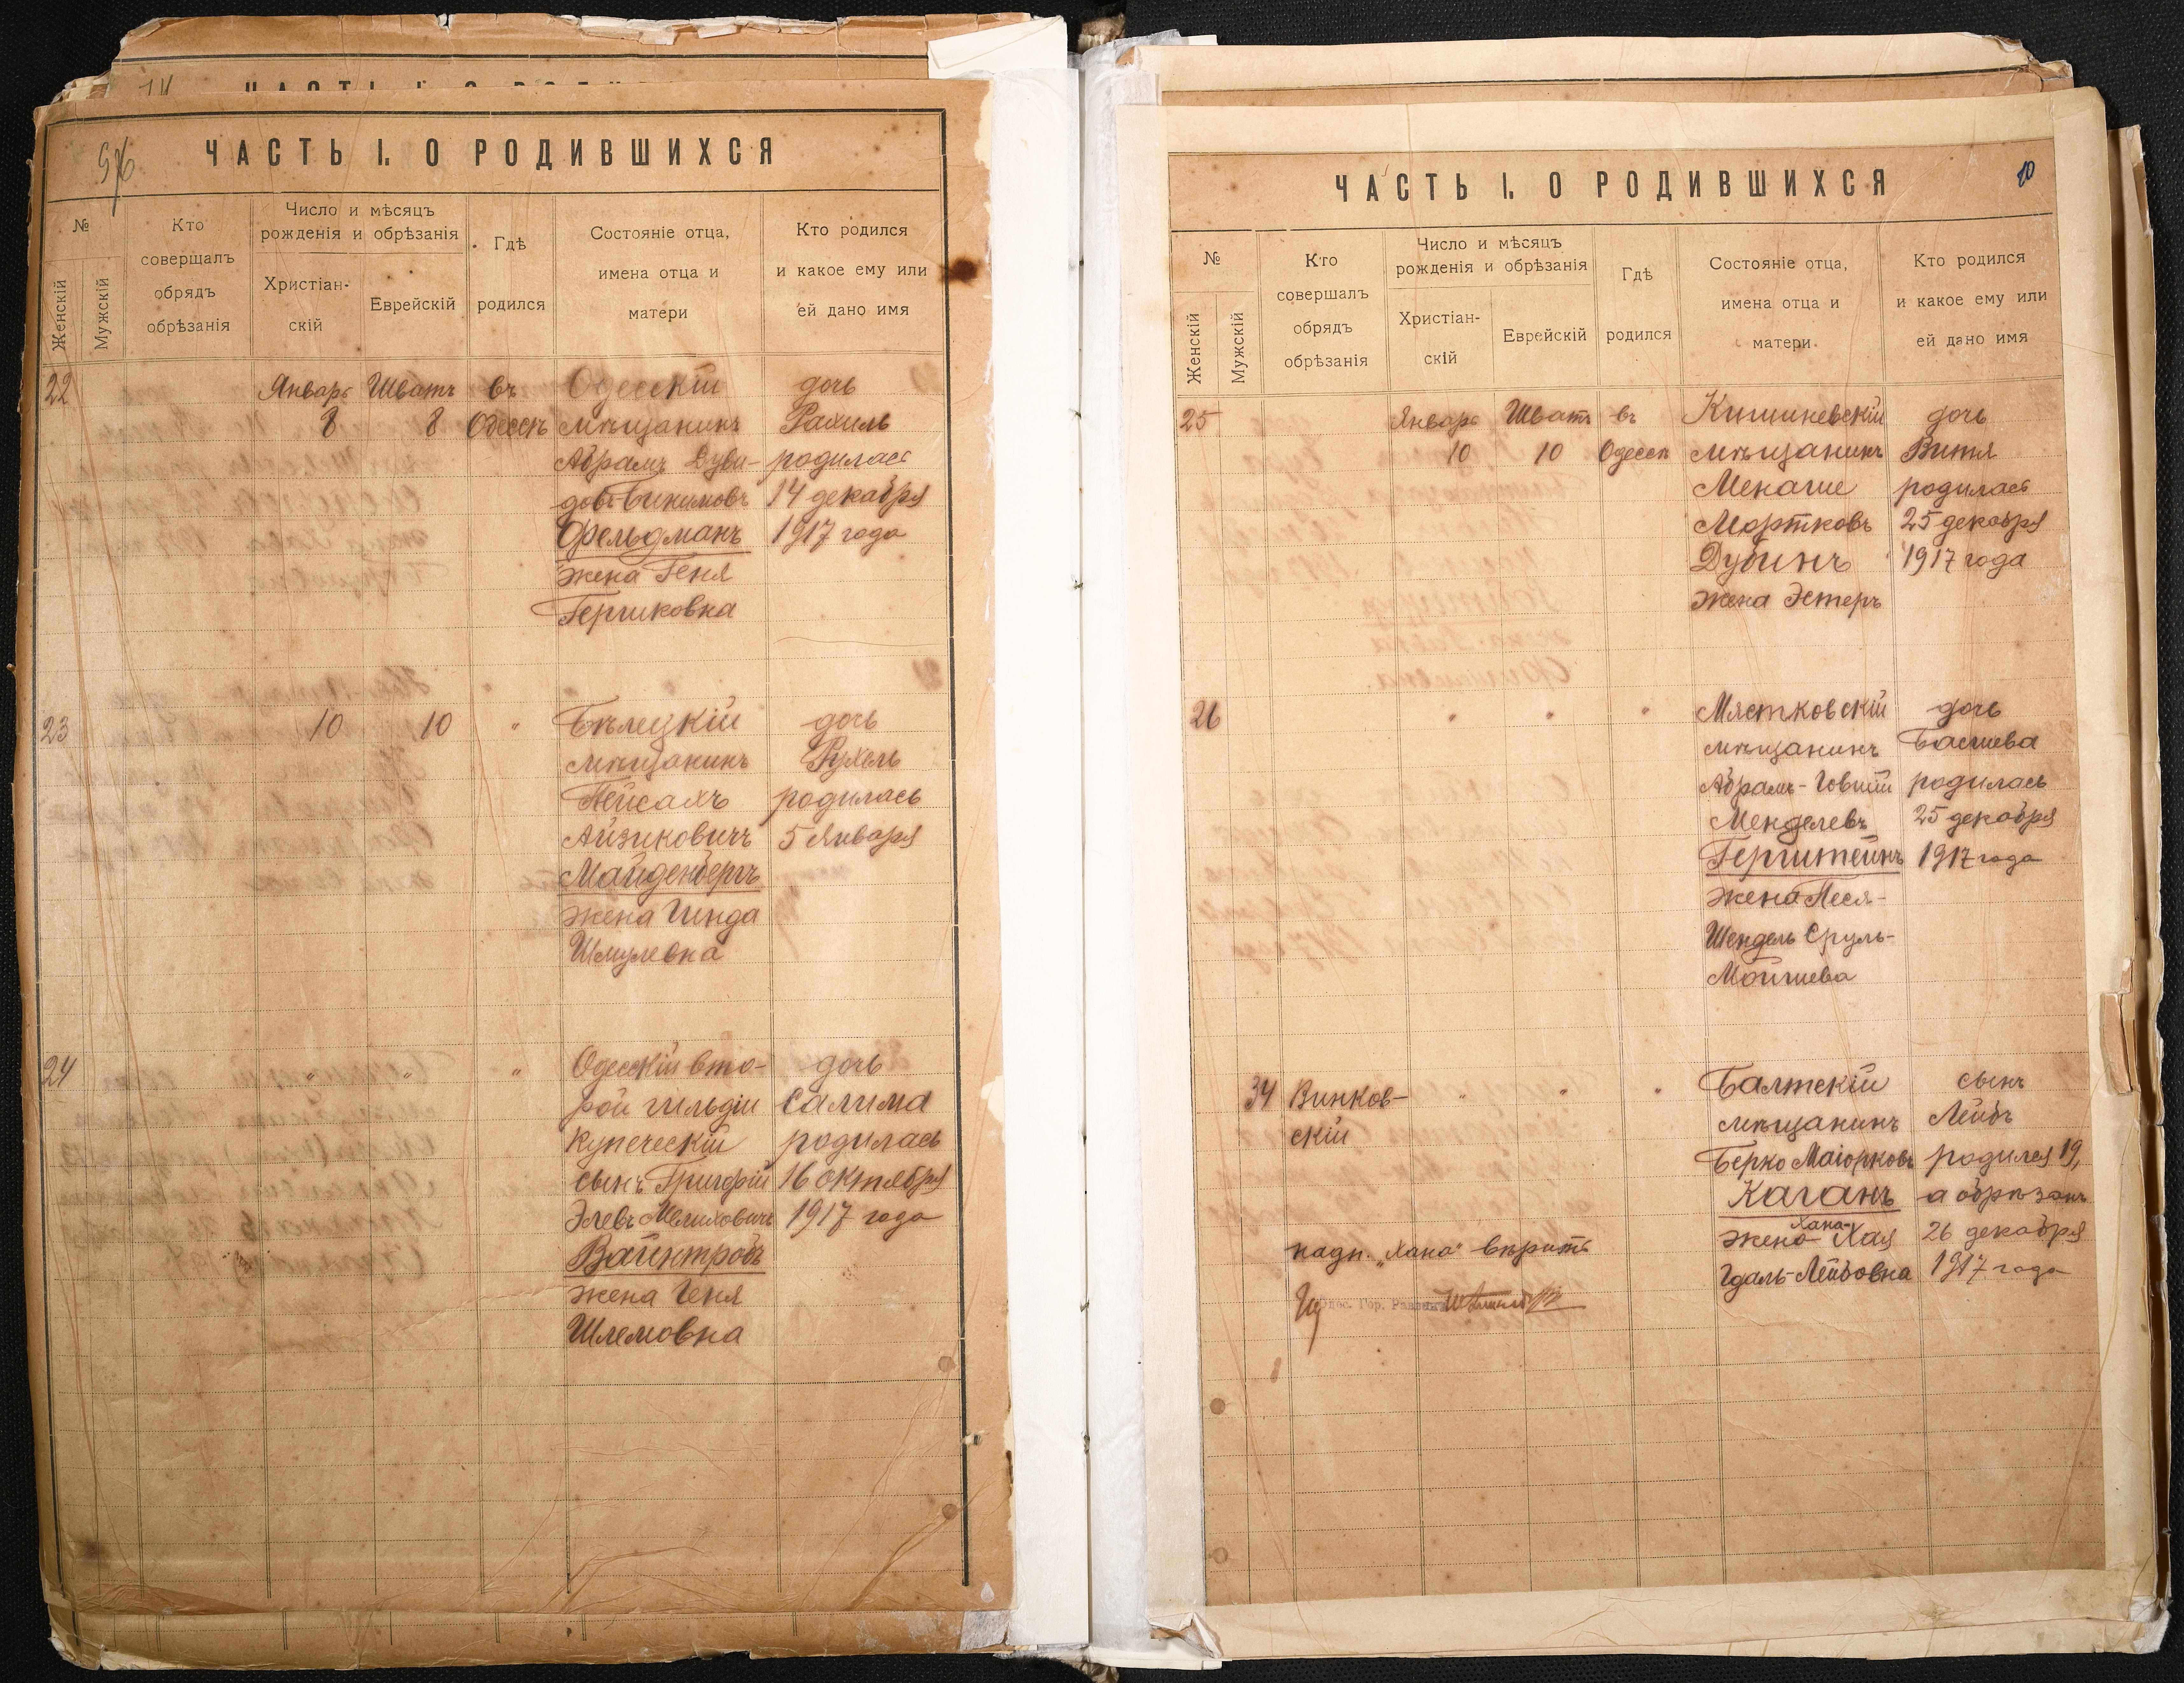 ЧАСТЬ I. О РОДИВШИХСЯ
№
Женскій
Мужскій
Кто совершалъ обрядъ обрѣзанія
Число и мѣсяцъ рожденія и обрѣзанія
Христіан-
скій
Еврейскій
Гдѣ родился
Состояніе отца, имена отца и матери
Кто родился и какое ему или ей дано имя
22 Январь Шватъ въ Одесскій дочь
8 8 Одессѣ мѣщанинъ Рахиль
Абрамъ Дуви- родилась
довъ 14 декабря
Фельдманъ 1917 года
жена Геня
Гершковна
23 10 10 " Бѣлецкій дочь
мѣщанинъ Рухель
Пейсахъ родилась
Айзиковичъ 5 Января
Майденбергъ
жена Гинда
Шмулевна
24 " " " Одесскій вто- дочь
рой гильдіи Салима
купеческій родилась
сынъ Григорій 16 октября
Элевъ Мелиховичъ 1917 года
Вайнтробъ
жена Геня
Шлемовна
ЧАСТЬ I. О РОДИВШИХСЯ
10
№
Женскій
Мужскій
Кто совершалъ обрядъ обрѣзанія
Число и мѣсяцъ рожденія и обрѣзанія
Христіан-
скій
Еврейскій
Гдѣ родился
Состояніе отца, имена отца и матери
Кто родился и какое ему или ей дано имя
25 Январь Шватъ въ Кишиневскій дочь
10 10 Одессѣ мѣщанинъ Витя
Менаше родилась
Мортковъ 25 декабря
Дубинъ 1917 года
жена Эстеръ
26 " " " Мястковскій дочь
мѣщанинъ Басшева
Абрамъ-Іовшій родилась
Менделевъ 25 декабря
Герштейнъ 1917 года
жена Песя-
Шендель Сруль-
Мойшева
34 Винков- " " " Балтскій сынъ
скій мѣщанинъ Лейбъ
Берко Маіорковъ родился 19,
Каганъ а обрѣзанъ
Хана-
жена Хая 26 декабря
Гдаль-Лейбовна 1917 года
надп. „Хана“ вѣрить
Гор. Раввинъ